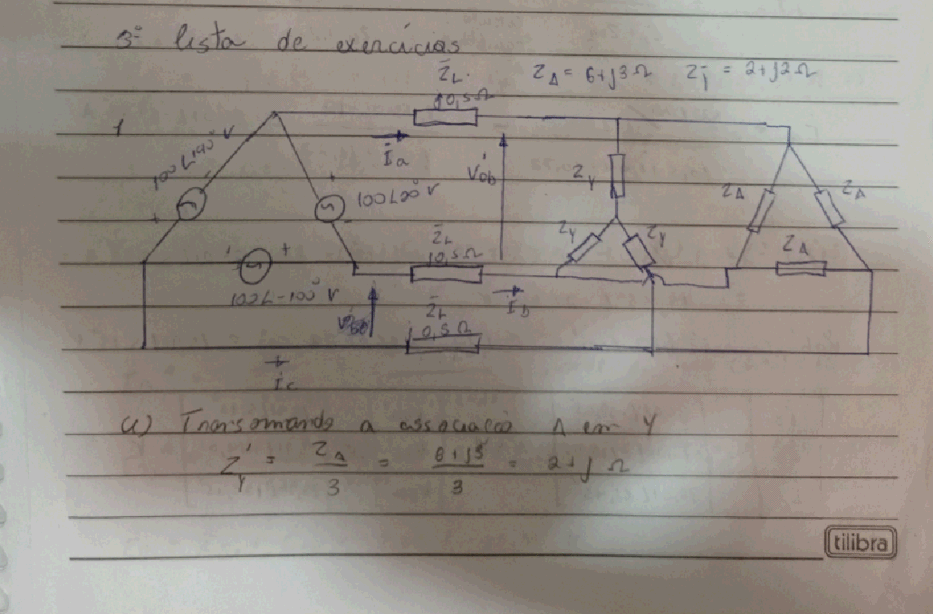 3ª lista de exercícios
Z̄L j0,5Ω
Z∆ = 6+j3Ω Zȳ = 2+j2Ω
1
100∠140° V
İa
100∠20° V
V̇ab
ZY
ZY
ZY
Z∆
Z∆
Z∆
Z̄L
j0,5Ω
100∠-100° V
İb
Z̄L
j0,5Ω
İc
a) Transomando a associação ∆ em Y
Z'Y = Z∆/3 = 6+j3/3 = 2+j Ω
tilibra